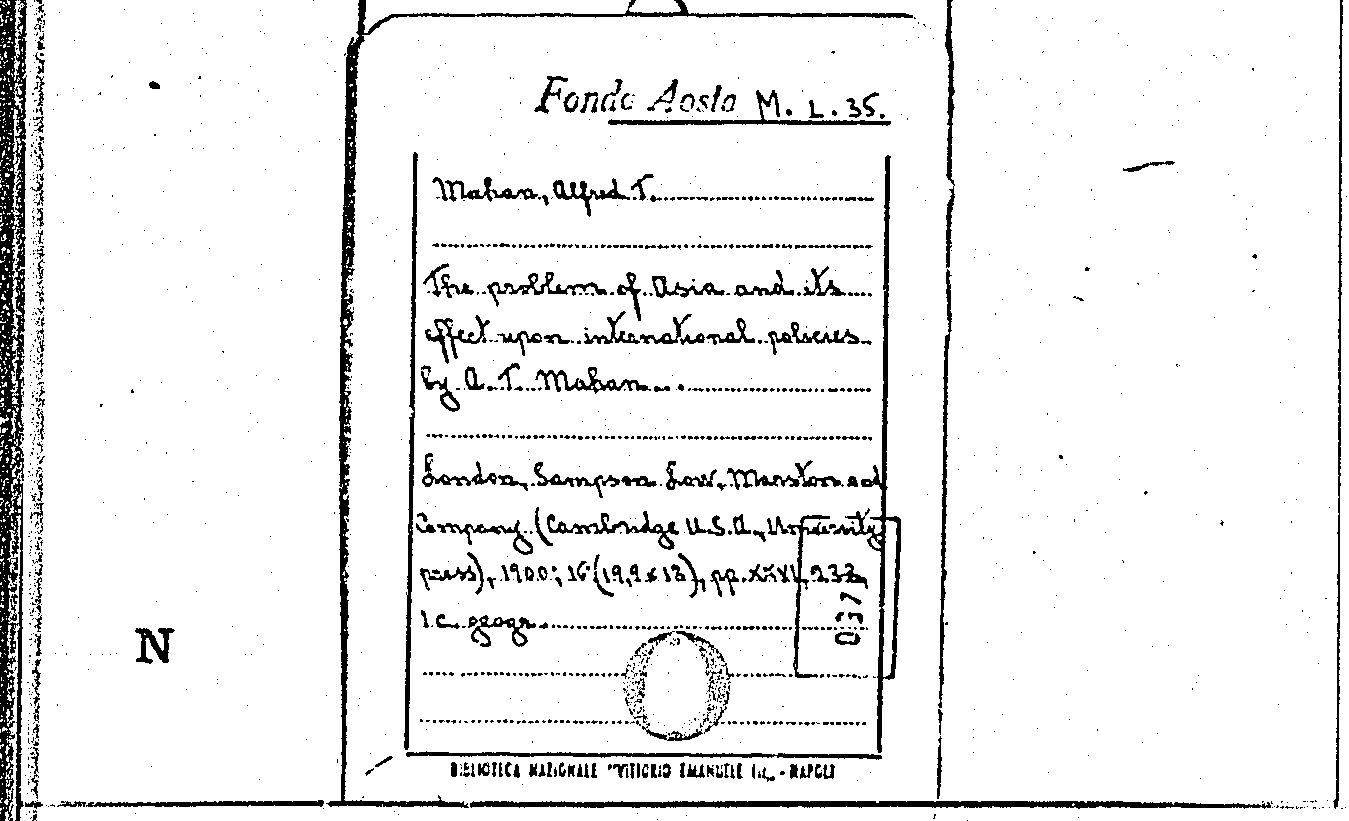 Fondo Aosta M. L. 35.
Mahan, Alfred T.
The problem of Asia and its
effect upon international policies
by A. T. Mahan...
London, Sampson Low, Marston and
Company (Cambridge U.S.A., University
press), 1900; 16° (19,9 x 13), pp. XXVI, 233,
1 c. geogr.
037
N
BIBLIOTECA NAZIONALE "VITTORIO EMANUELE III„ - NAPOLI